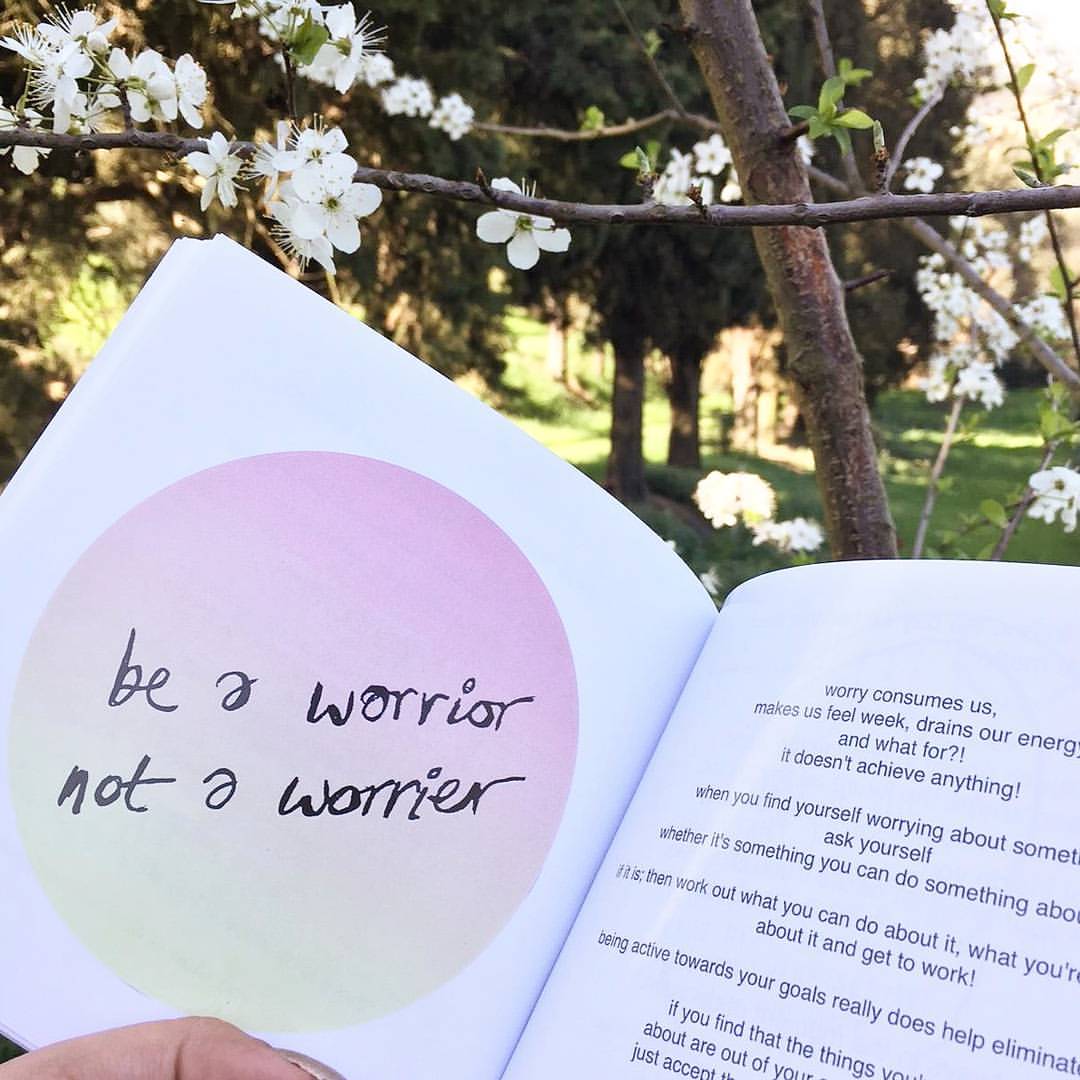 be a worrior
not a worrier
worry consumes us,
makes us feel week, drains our energy
and what for?!
it doesn't achieve anything!
when you find yourself worrying about
ask yourself
whether it's something you can do something
if it is; then work out what you can do about it, what
about it and get to work!
being active towards your goals really does help
if you find that the things
about are out of your
just accept